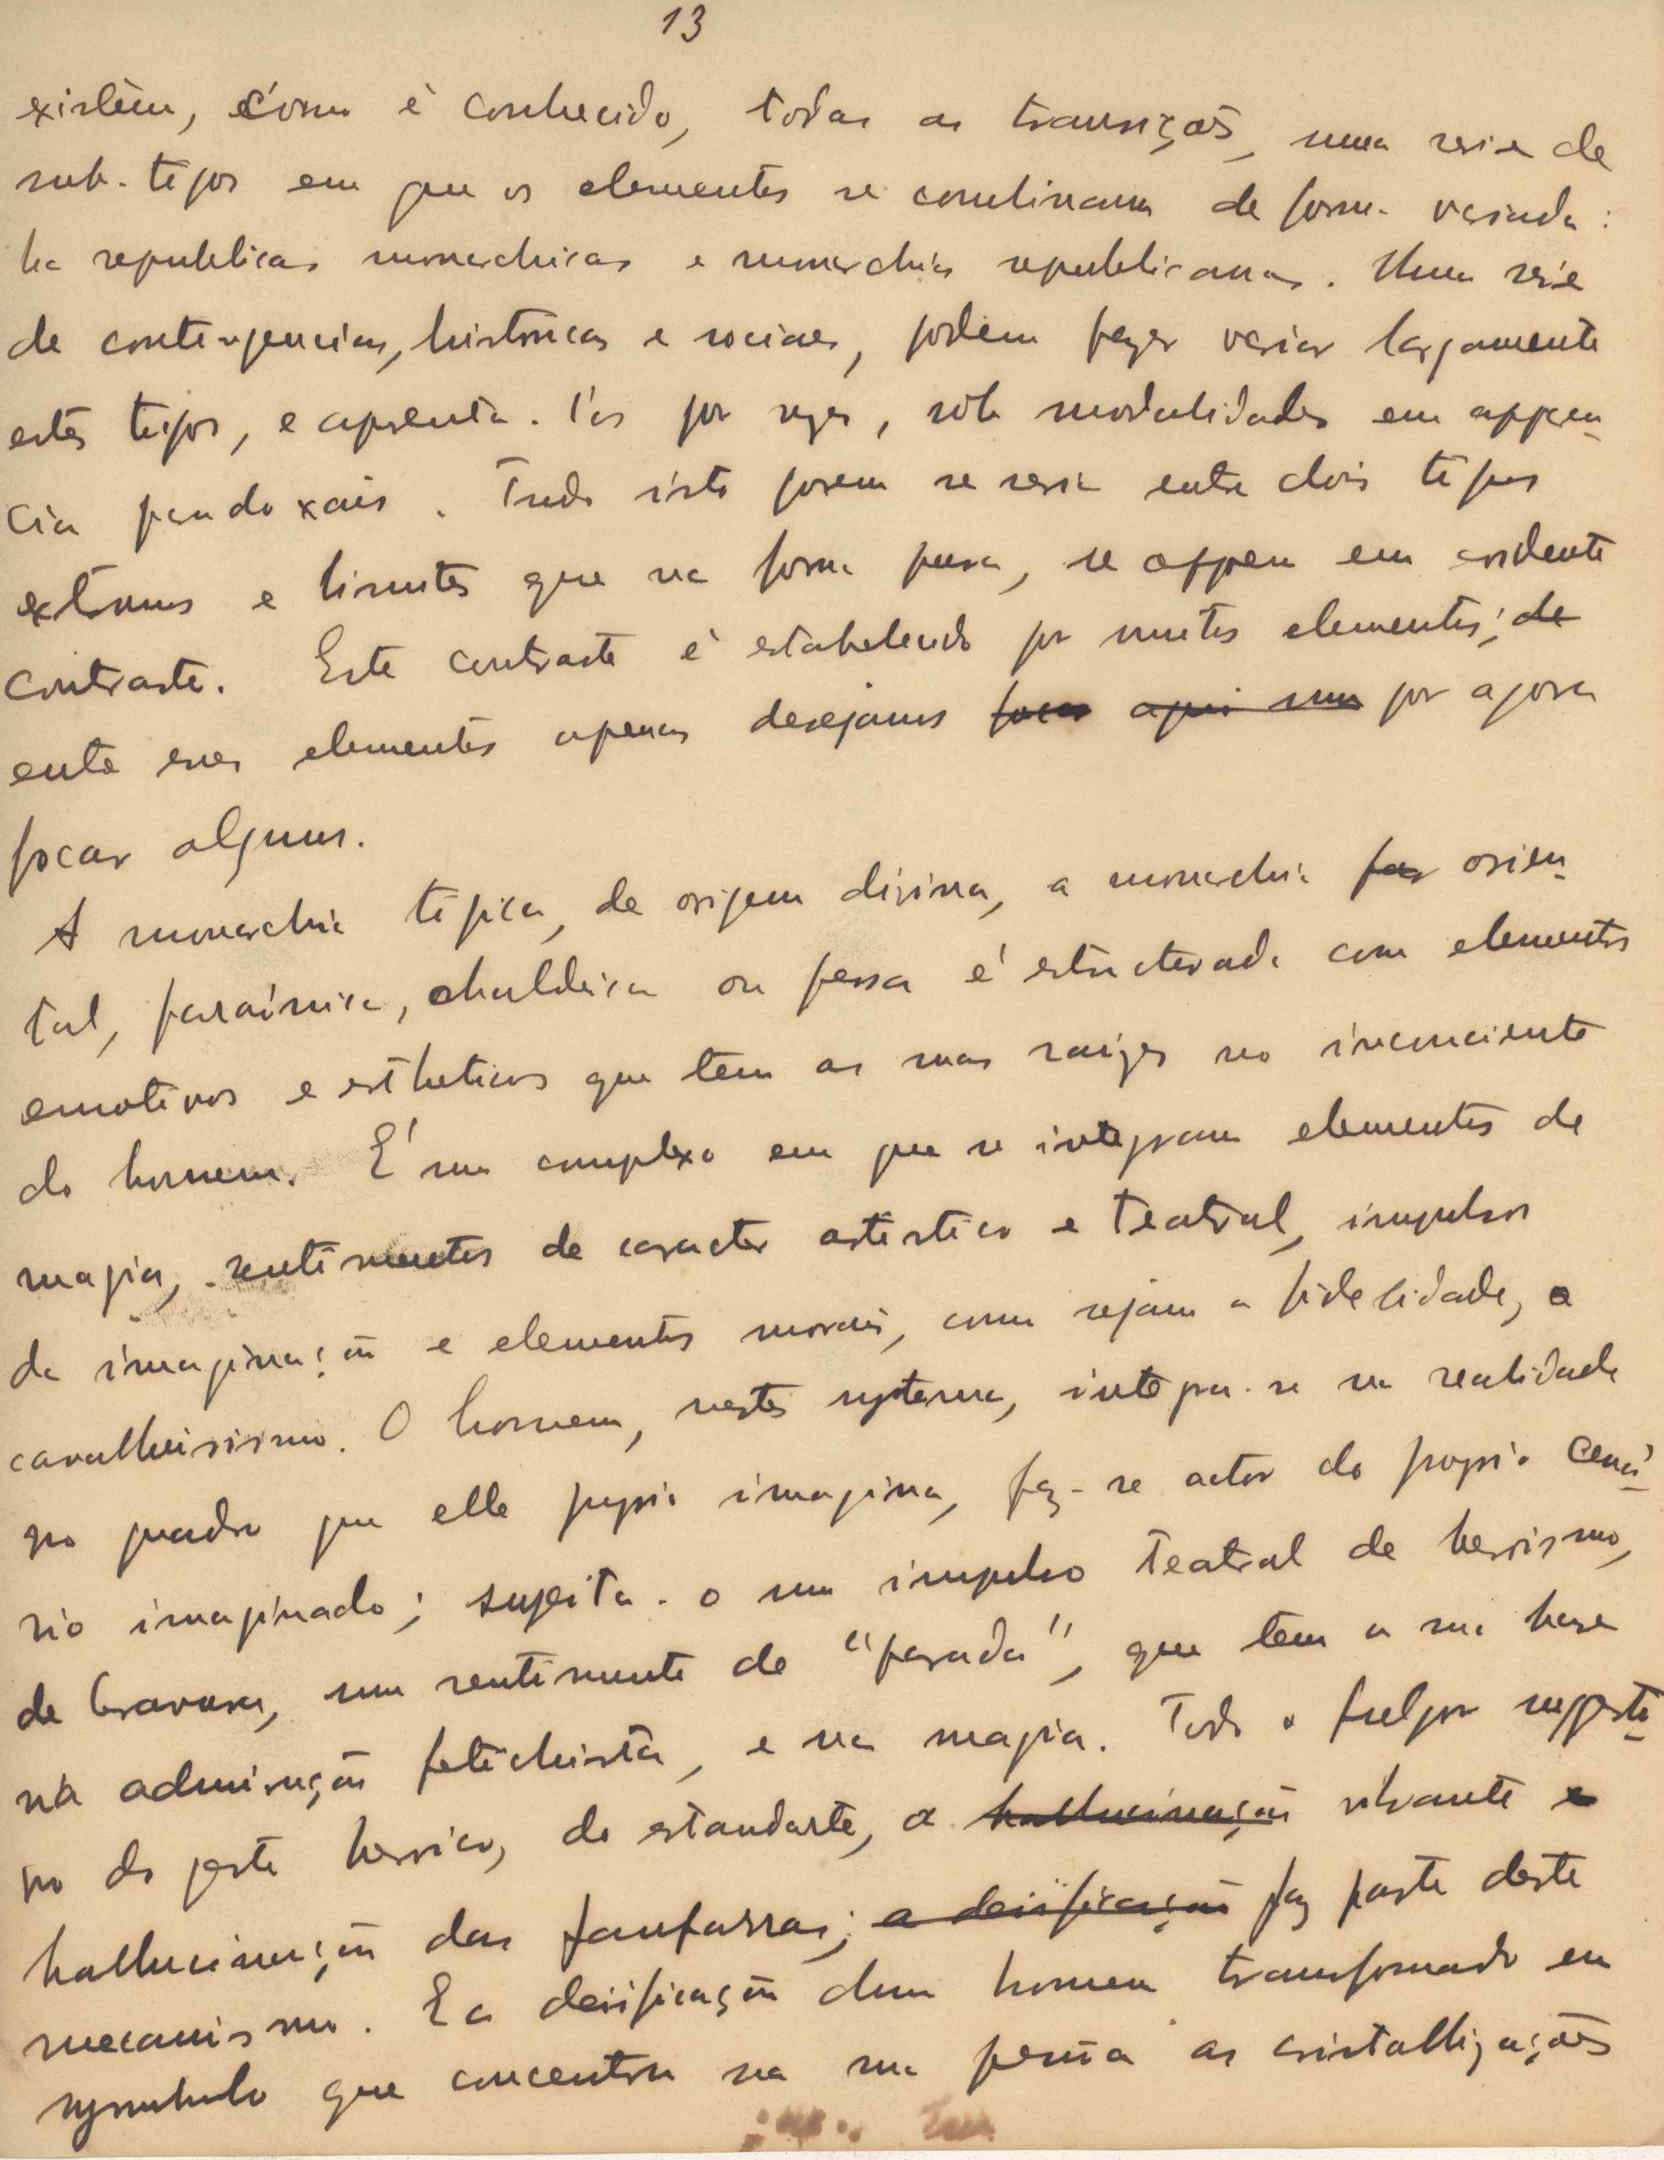 13
existem, como é conhecido, todas as transições, uma serie de
sub-tipos em que os elementos se combinam de forma variada:
ha republicas monarchicas e monarchias republicanas. Uma serie
de contingencias, historicas e sociaes, podem fazer variar largamente
estes tipos, e apresenta-l'os por vezes, sob modalidades em apparen-
cia paradoxais. Tudo isto porem se seria entre dois tipos
extremos e limites que na forma pura, se oppem em evidente
contraste. Este contraste é estabelecido por muitos elementos; de
entre esses elementos apenas desejamos focar aqui um por agora
focar alguns.
A monarchia tipica, de origem divina, a monarchia far orien-
tal, faraónica, chaldaica ou persa é estructurada com elementos
emotivos e estheticos que tem as suas raizes no inconciente
do homem. É um complexo em que se integram elementos de
magia, sentimentos de caracter artistico e teatral, impulsos
da imaginação e elementos morais, como sejam a fidelidade, o
cavalheirismo. O homem, neste systema, integra-se na realidade
no quadro que elle proprio imagina, faz-se actor do proprio cená-
rio imaginado; sugeita-o um impulso teatral de heroismo,
de bravura, um sentimento de "parada", que tem a sua base
na admiração fetichista, e na magia. Todo o fulgor suggesti-
vo do gesto heroico, do estandarte, a hallucinação vibrante e
hallucinação das fanfarras; a deificação faz parte deste
mecanismo. E a deificação dum homem transformado em
symbolo que concentra na sua pessoa as cristallizações